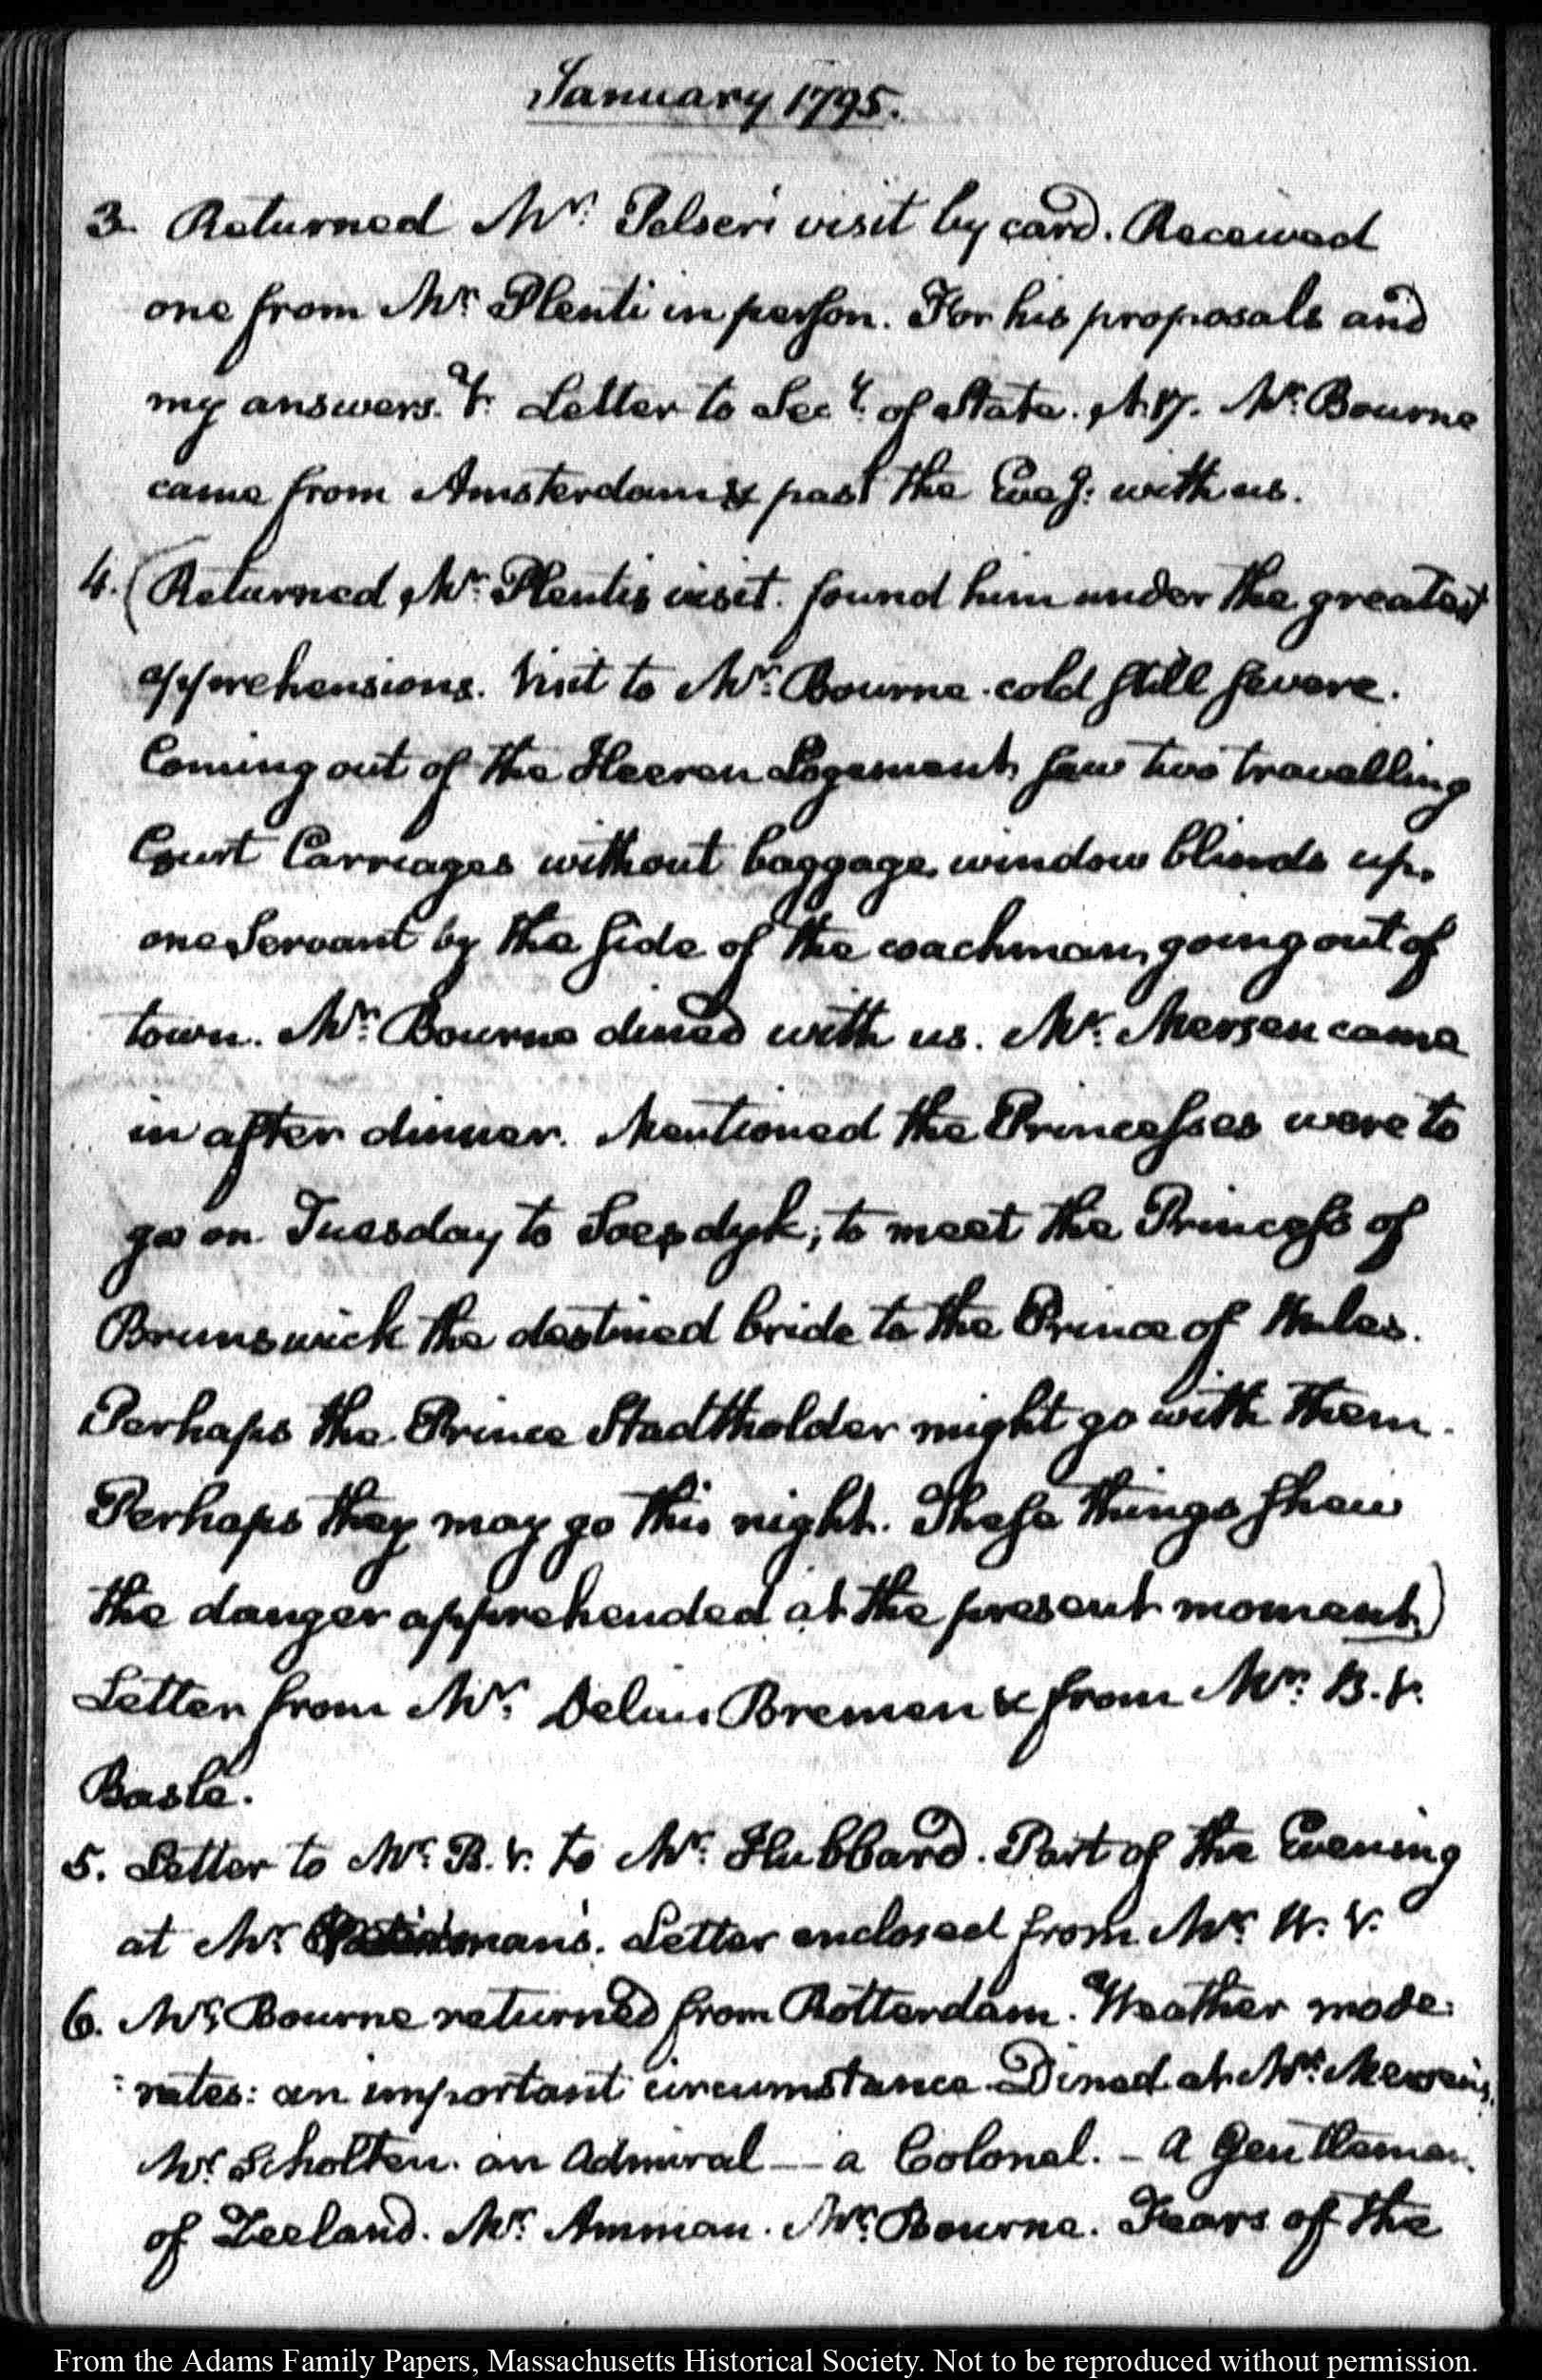 January 1795.
3. Returned Mr. Pelser's visit by card. Received
one from Mr. Plenti in person. For his proposals and
my answers. Letter to Secy. of State. N. 17. Mr. Bourne
came from Amsterdam & past the Eveg: with us.
4. (Returned Mr. Plentis visit. found him under the greatest
apprehensions. Visit to Mr. Bourne. cold still severe.
Coming out of the Heeren Logement, saw two travelling
Court Carriages without baggage, window blinds up,
one Servant by the side of the coachman, going out of
town. Mr. Bourne dined with us. Mr. Mersen came
in after dinner. Mentioned the Princesses were to
go on Tuesday to Soesdyk; to meet the Princess of
Brunswick the destined bride to the Prince of Wales.
Perhaps the Prince Stadtholder might go with them.
Perhaps they may go this night. These things shew
the danger apprehended at the present moment.)
Letter from Mr. Delius Bremen & from Mr. B. V.
Basle.
5. Letter to Mr. B. V. to Mr. Hubbard. Part of the Evening
at Mr. Letter enclosed from Mr. W. V.
6. Mr. Bourne returned from Rotterdam. Weather mode:
:rates: an important circumstance. Dined at Mr. Mersen's.
Mr. Scholten. an Admiral — a Colonel. - A Gentleman.
of Zeeland. Mr. Amman. Mr. Bourne. Fears of the
From the Adams Family Papers, Massachusetts Historical Society. Not to be reproduced without permission.